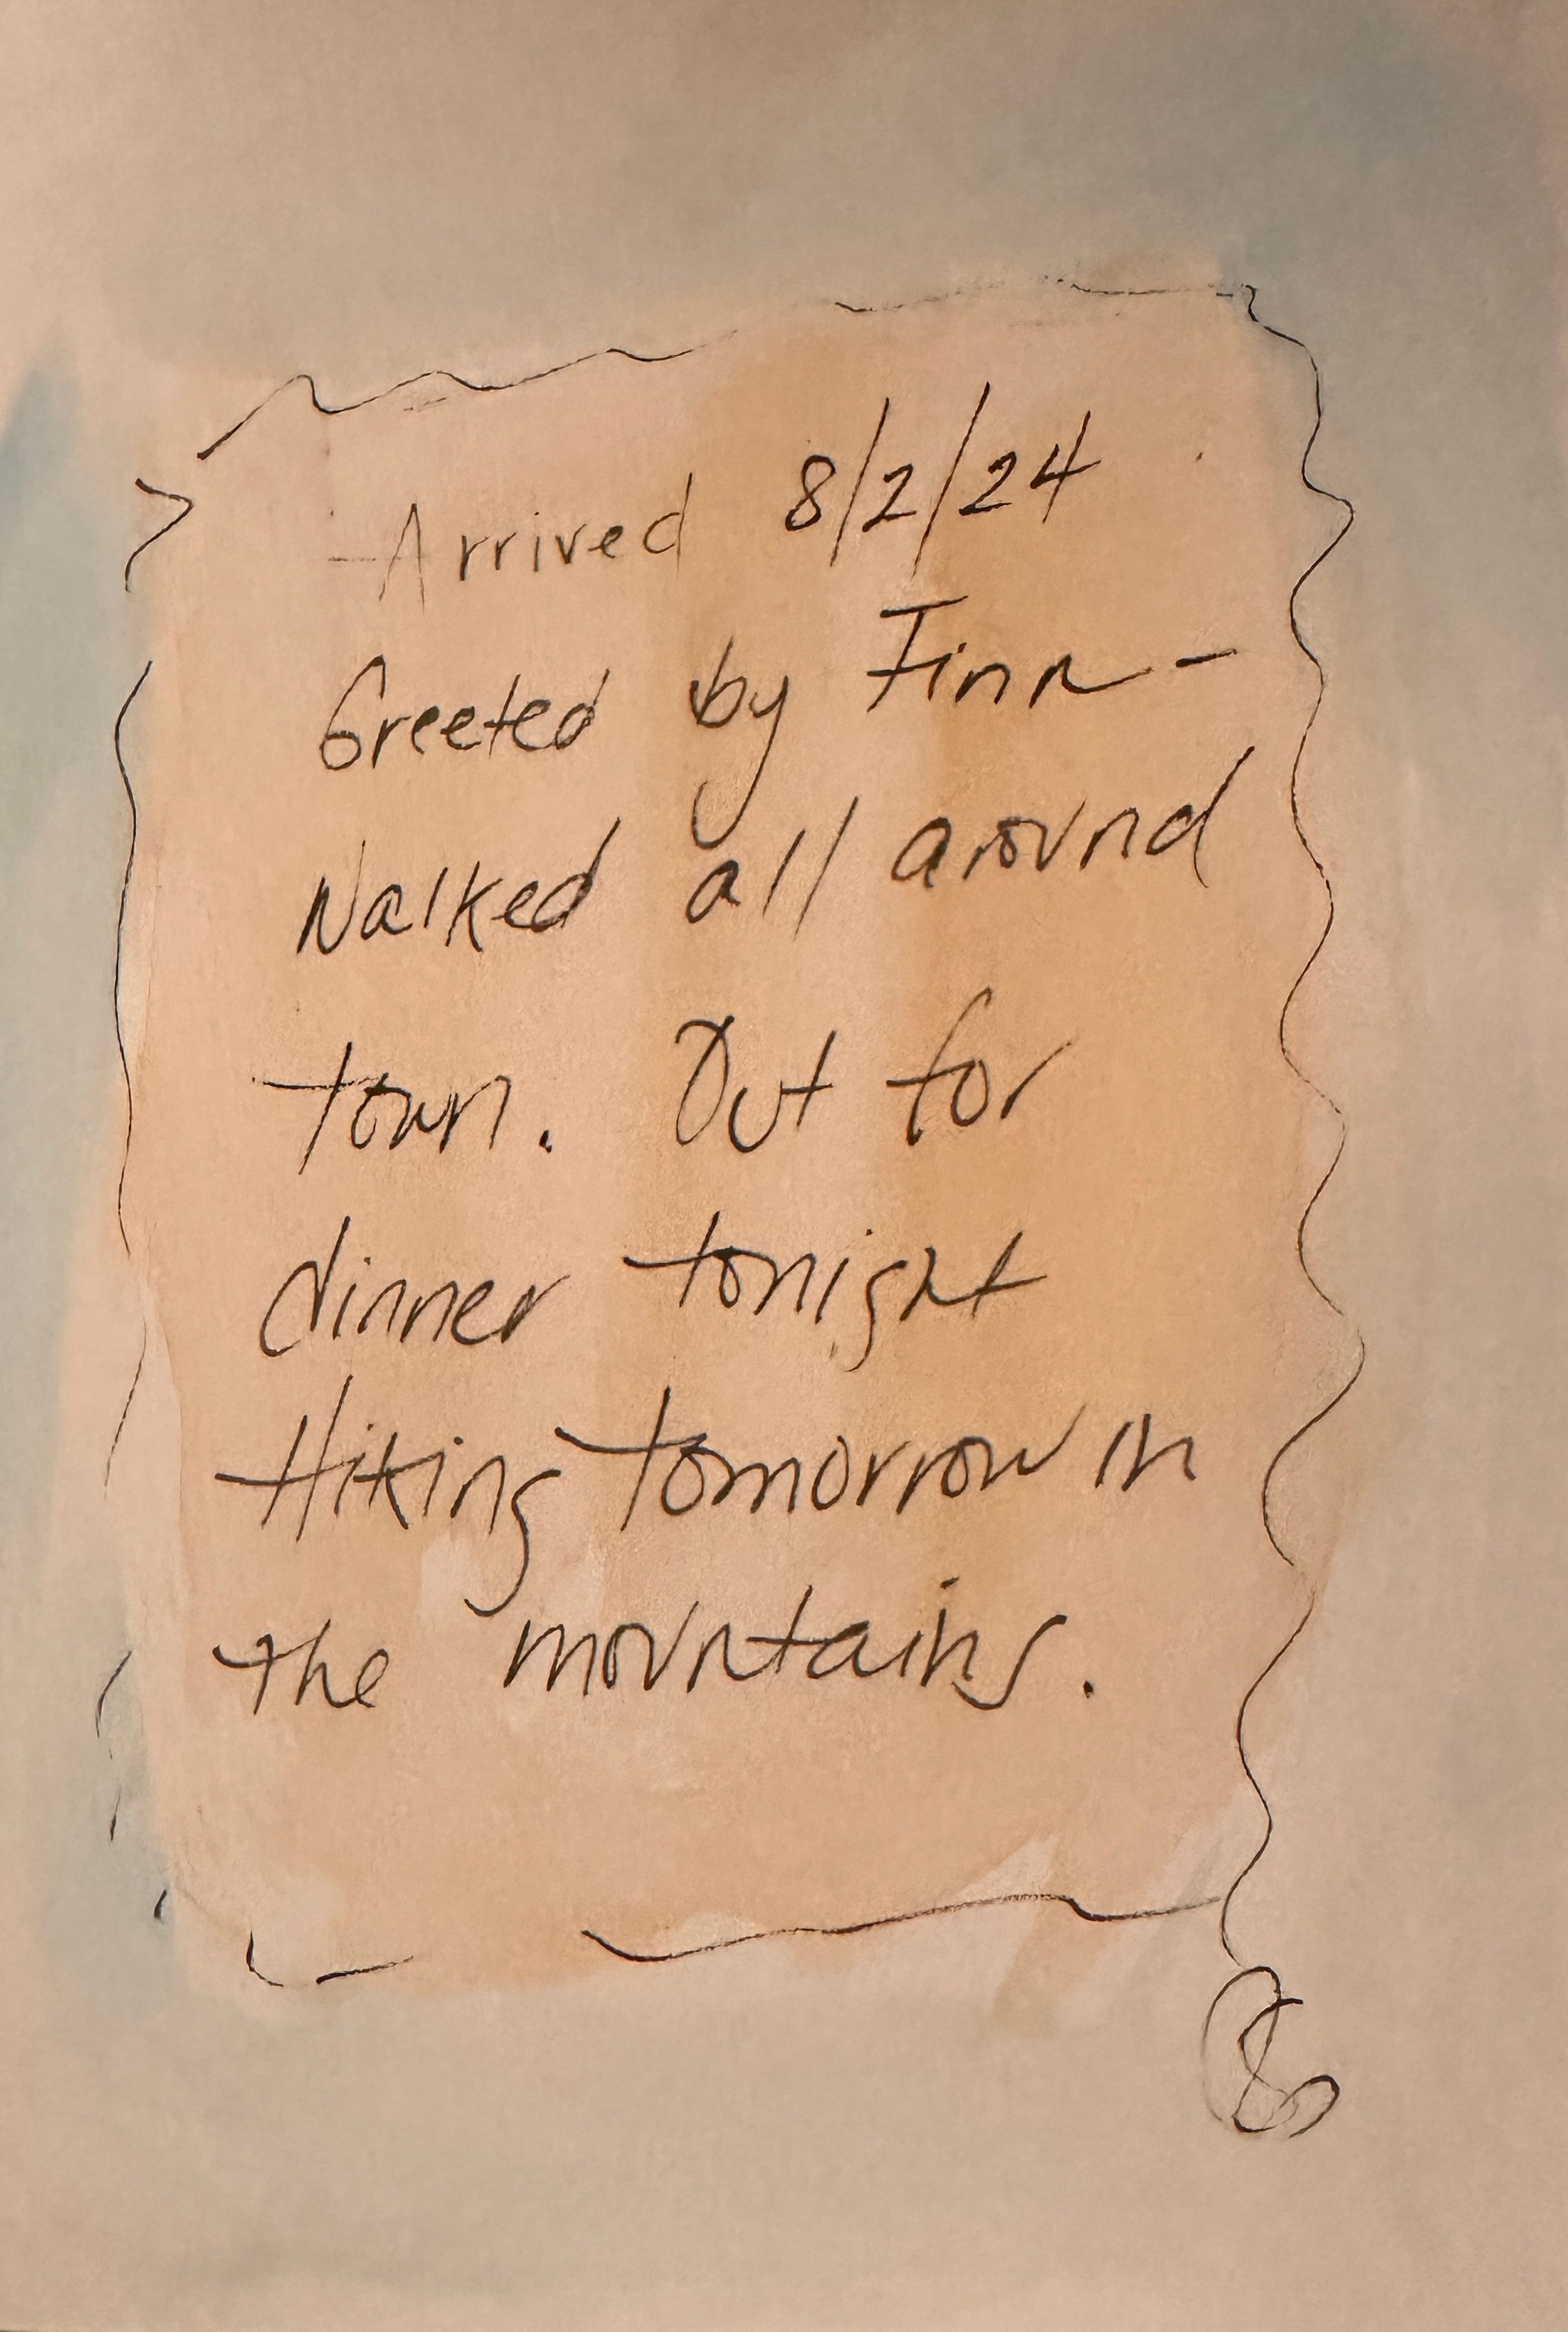 -Arrived 8/2/24
Greeted by Finn-
Walked all around
town. Out for
dinner tonight
Hiking tomorrow in
the mountains.